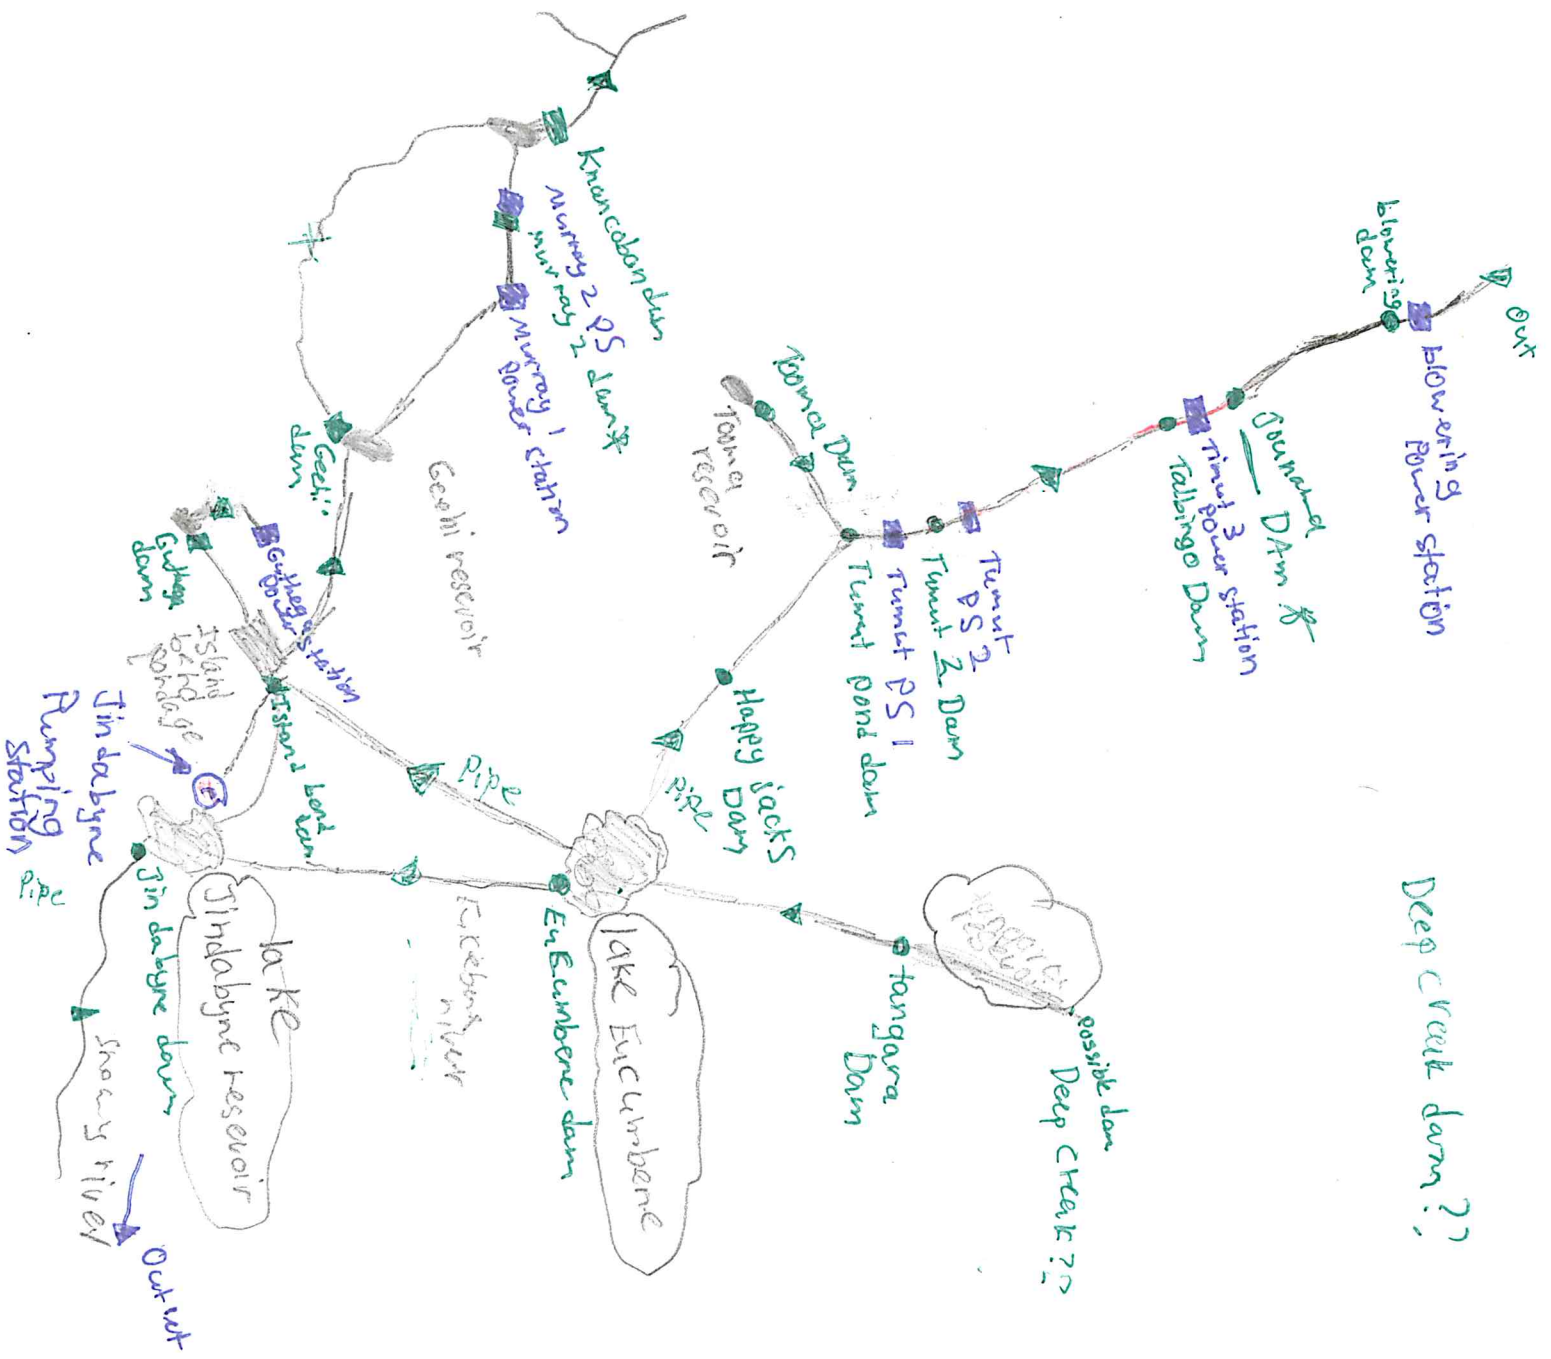 Out
blowering
dam
blowering
power station
Jounama
DAm *
Timut 3
power station
Talbingo Dam
Tumut
PS 2
Tumut 2 Dam
Tumut PS 1
Tumut pond dam
Tooma Dam
Tooma
reservoir
Happy jacks
Dam
Pipe
Khancoban dam
Murray 2 PS
murray 2 dam *
Murray 1
power station
Geehi
dam
Geehi reservoir
Guthega
dam
Guthega
power station
Island
bend
pondage
Island bend
dam
Pipe
Jindabyne
Pumping
station
Pipe
Jindabyne dam
lake
Jindabyne reservoir
Snowy river
Outlet
river
Eucumbene dam
lake Eucumbene
tangara
Dam
possible dam
Deep Creek??
Deep creek dam??